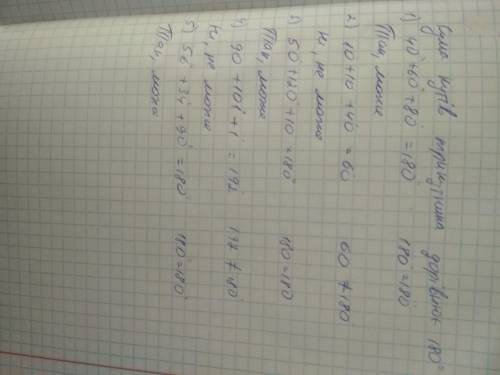 Сума кутів трикутника дорівнює 180°
1) 40°+60°+80° = 180° 180°=180°
Так, може
2) 10+10+40 = 60 60≠180
Ні, не може
3) 50+120+10=180° 180=180
Так, може
4) 90+101+1=192 192≠180
Ні, не може
5) 56+34+90=180° 180=180°
Так, може